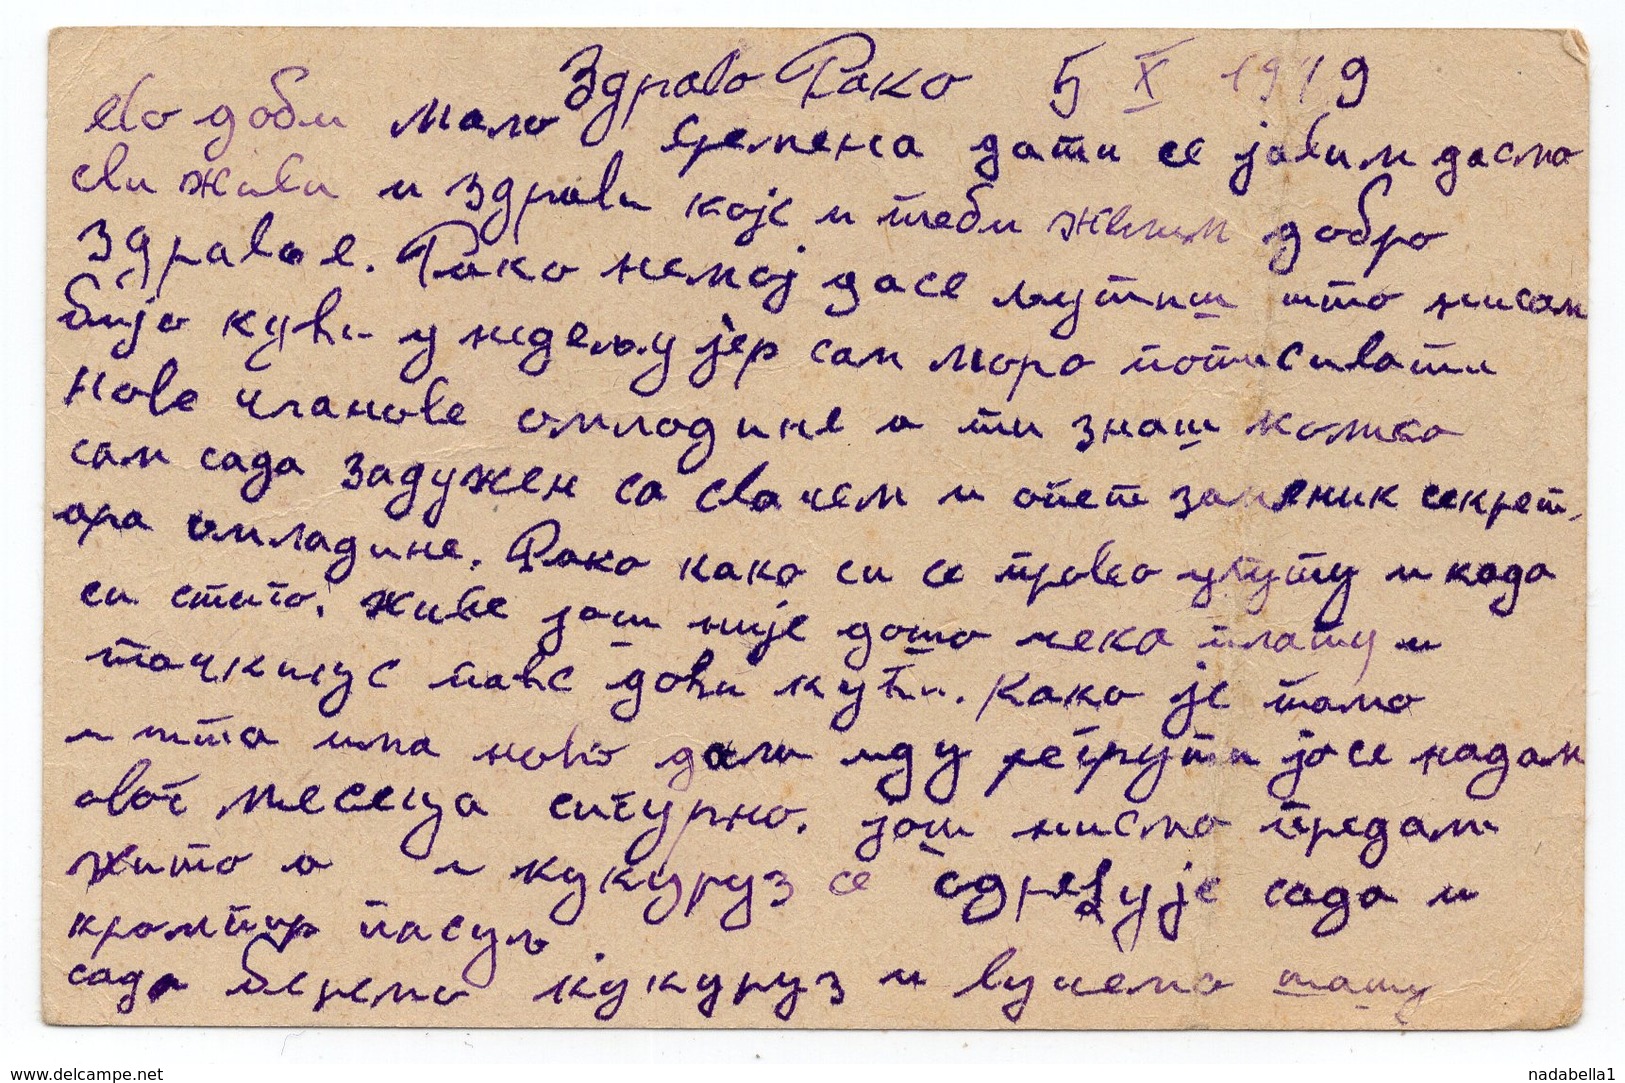 Здраво Рако 5 X 1949
ево доби мало времена дати се јавим дасмо
сви живи и здрави које и теби желим добро
здравље. Рако немој дасе љутиш што нисам
бијо кући у недељу јер сам моро потписивати
нове чланове омладине а ти знаш колко
сам сада задужен са свачем и опет заменик секрет
ара омладине. Рако како си се прово упуту и када
си стиго. Живе још није дошо чека плату и
па ће доћи кући. Како је тамо
и шта има ново дали иду регрути јасе надам
овог месеца сигурно. још нисмо предали
жито а и кукуруз се одређује сада и
кромпир пасуљ
сада беремо кукуруз и вучемо
delcampe.net
nadabella1